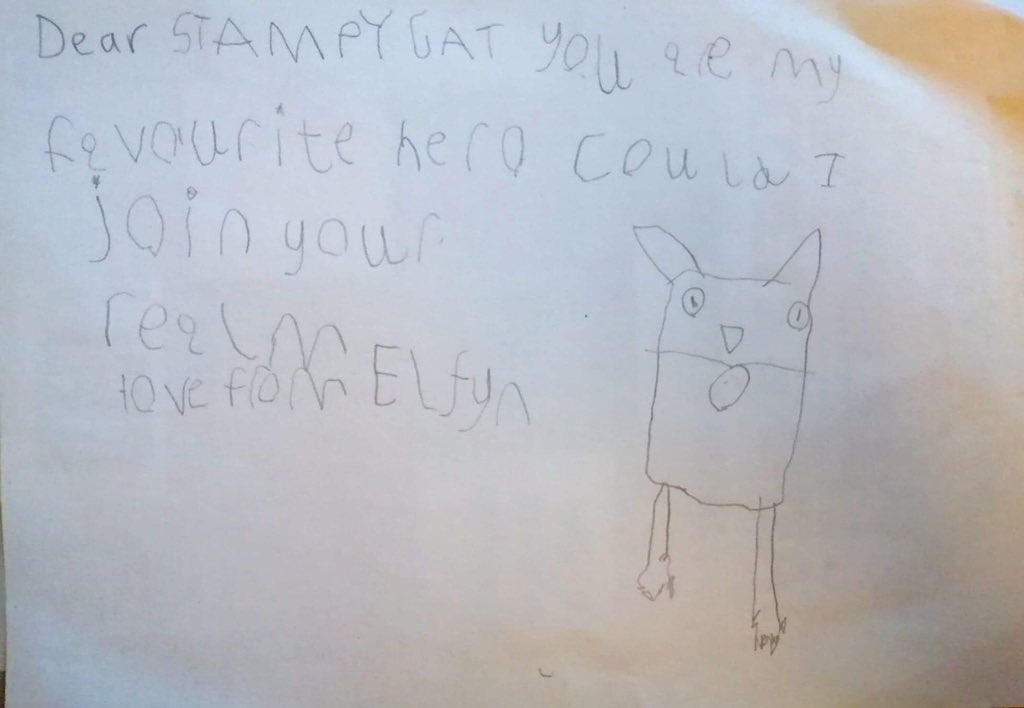 Dear STAMPY CAT you are my
favourite hero could I
join your
realm
love from Elfyn